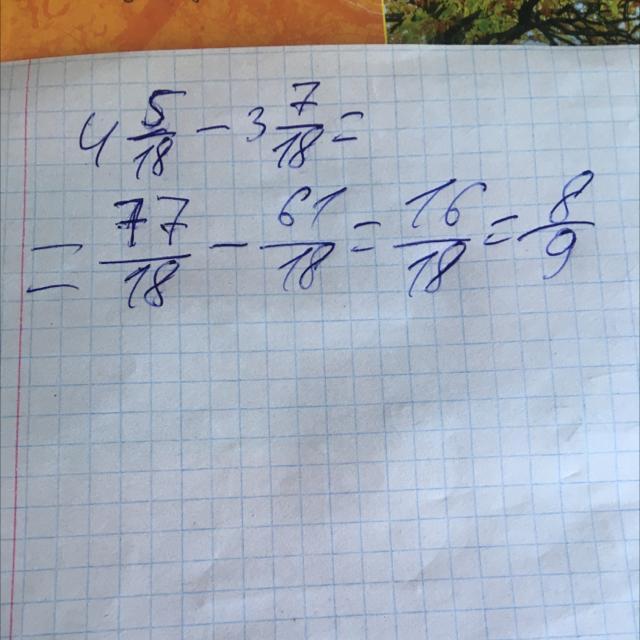 4 5/18 - 3 7/18 =
= 77/18 - 61/18 = 16/18 = 8/9